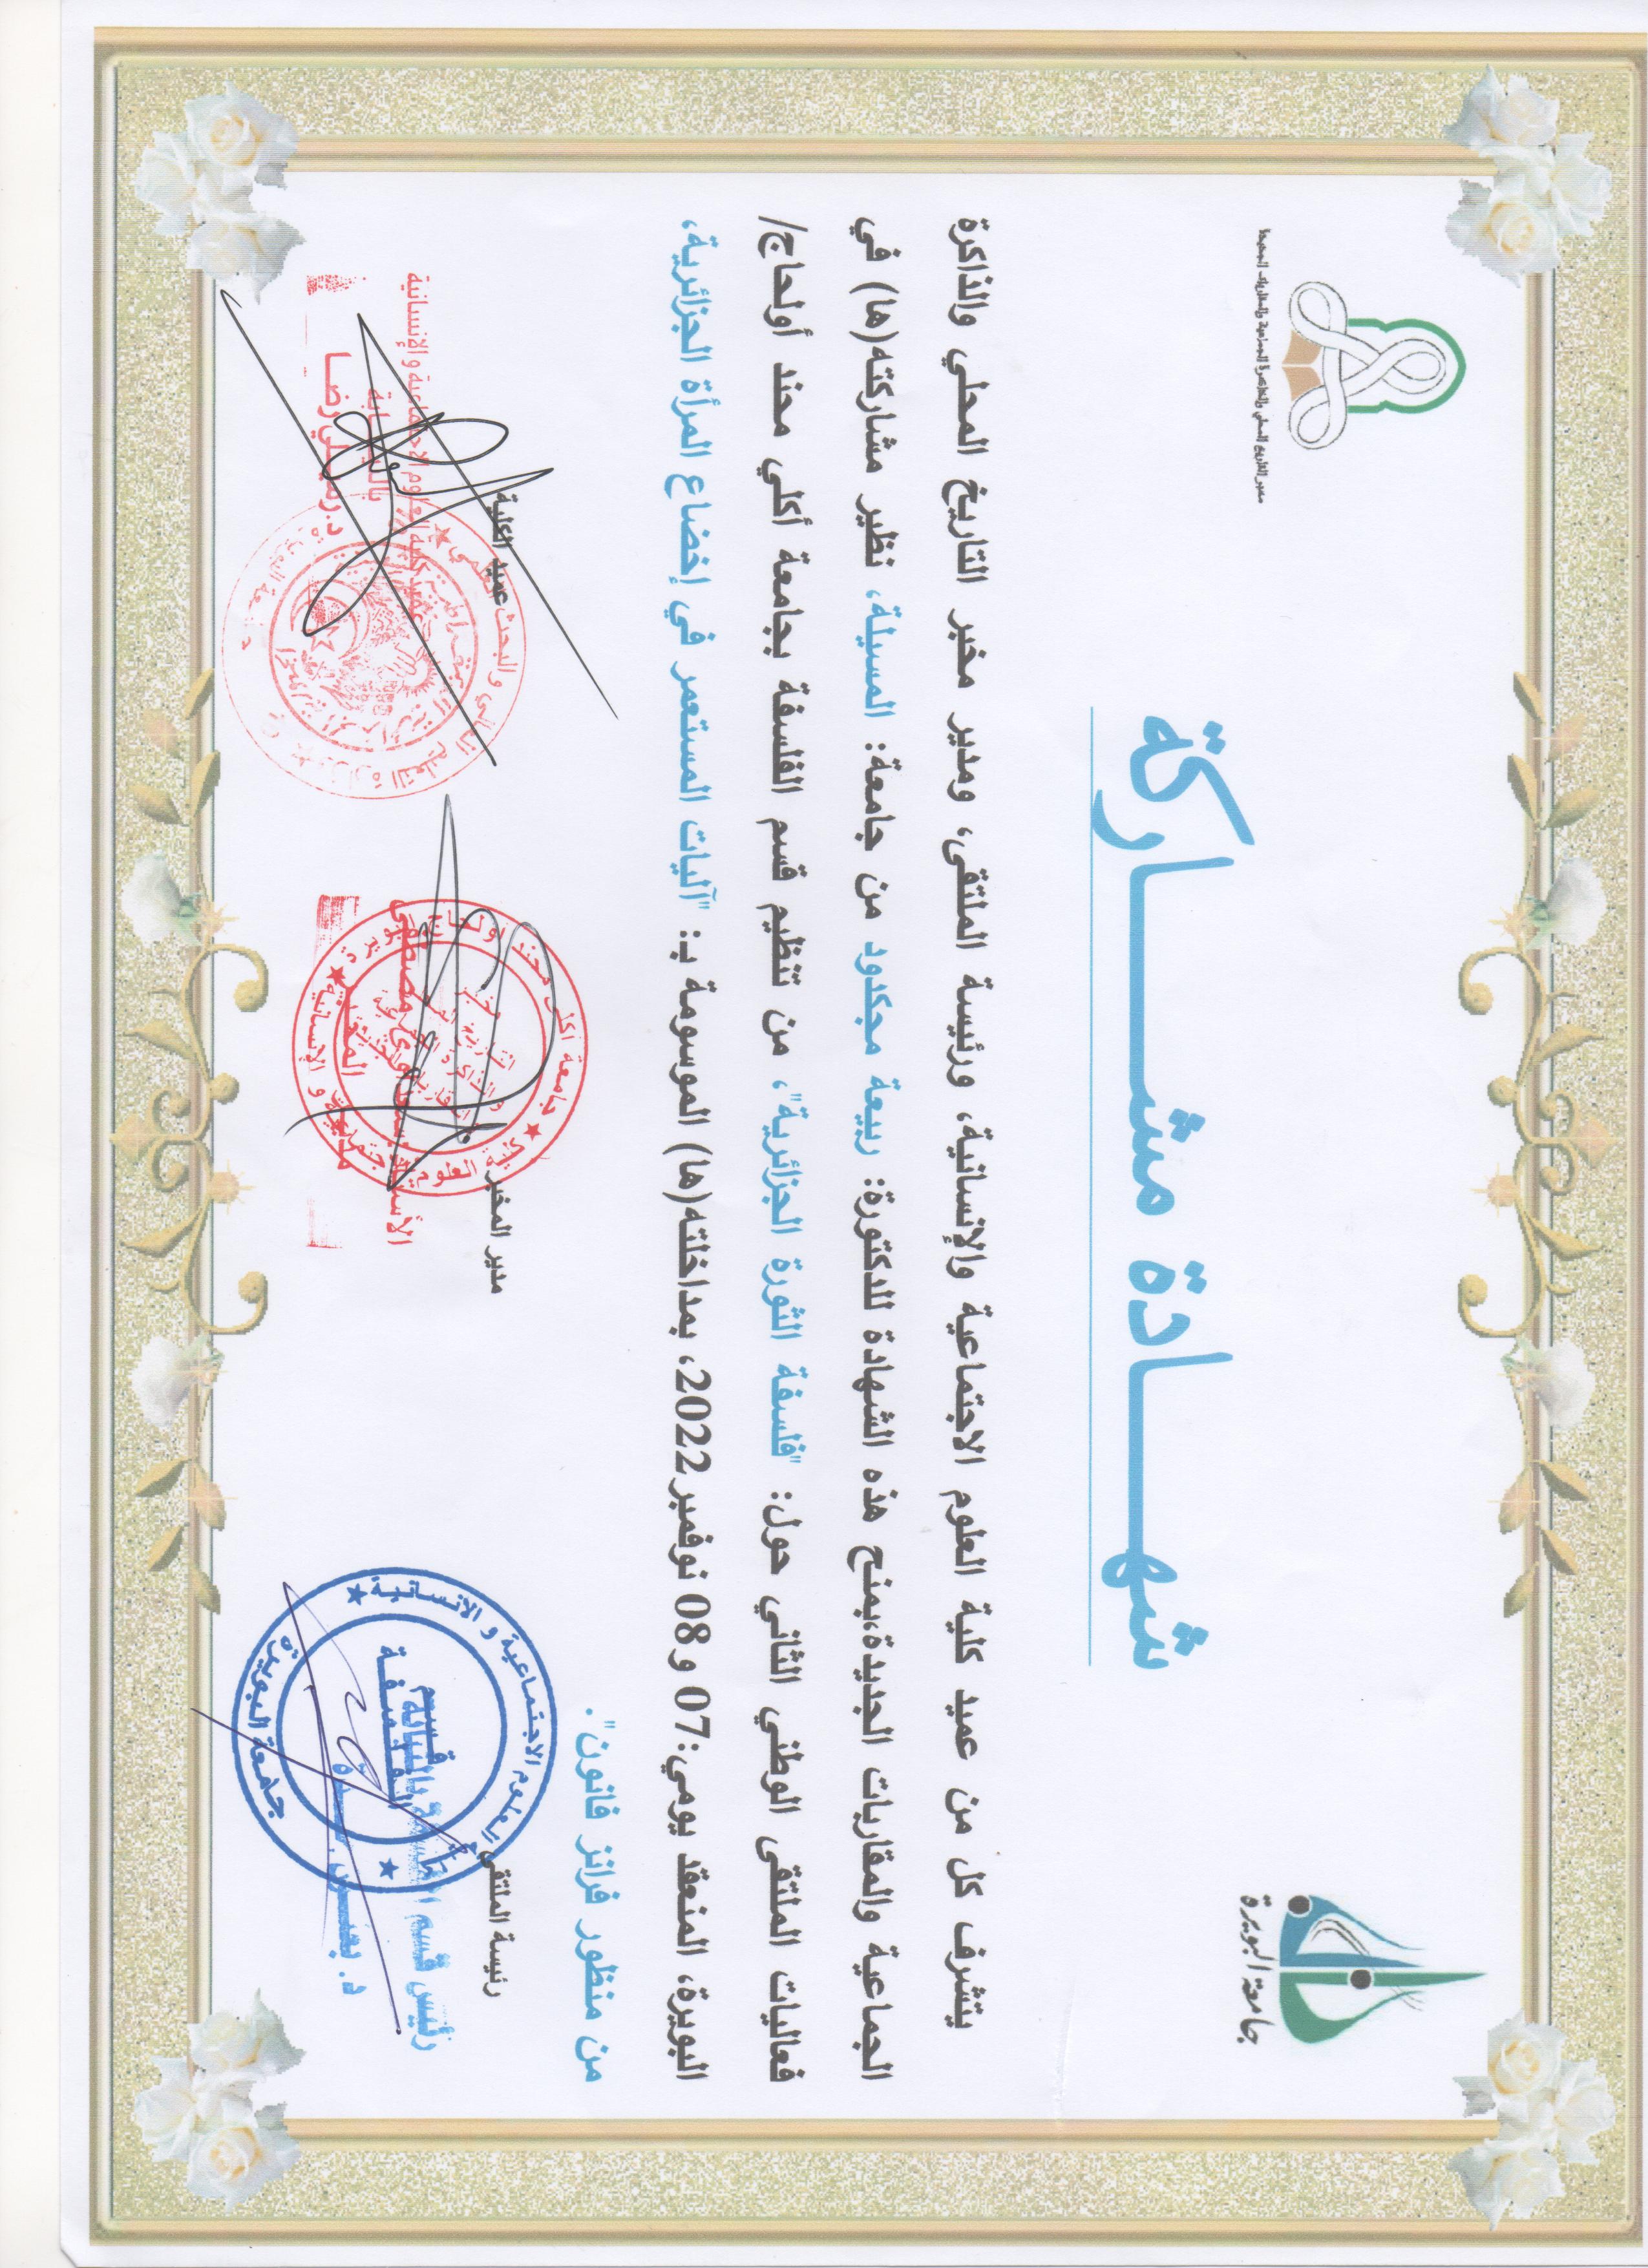 جامعة البويرة
مخبر التاريخ المحلي والذاكرة الجماعية والمقاربات الجديدة
شهـــادة مشـــاركة
يتشرف كل من عميد كلية العلوم الاجتماعية والإنسانية، ورئيسة الملتقى، ومدير مخبر التاريخ المحلي والذاكرة
الجماعية والمقاربات الجديدة،بمنح هذه الشهادة للدكتورة: ربيعة مجكدود من جامعة: المسيلة، نظير مشاركته(ها) في
فعاليات الملتقى الوطني الثاني حول: "فلسفة الثورة الجزائرية"، من تنظيم قسم الفلسفة بجامعة أكلي محند أولحاج/
البويرة، المنعقد يومي:07 و08 نوفمبر2022، بمداخلته(ها) الموسومة بـ: "آليات المستعمر في إخضاع المرأة الجزائرية،
من منظور فرانز فانون".
رئيسة الملتقى
مدير المخبر
عميد الكلية
العلوم الاجتماعية و الانسانية
جامعة البويرة
قسم
الفلسفة
رئيس قسم
جامعة اكلي محند اولحاج
كلية العلوم
مصطفى
العلوم الاجتماعية والإنسانية
بالنيابة